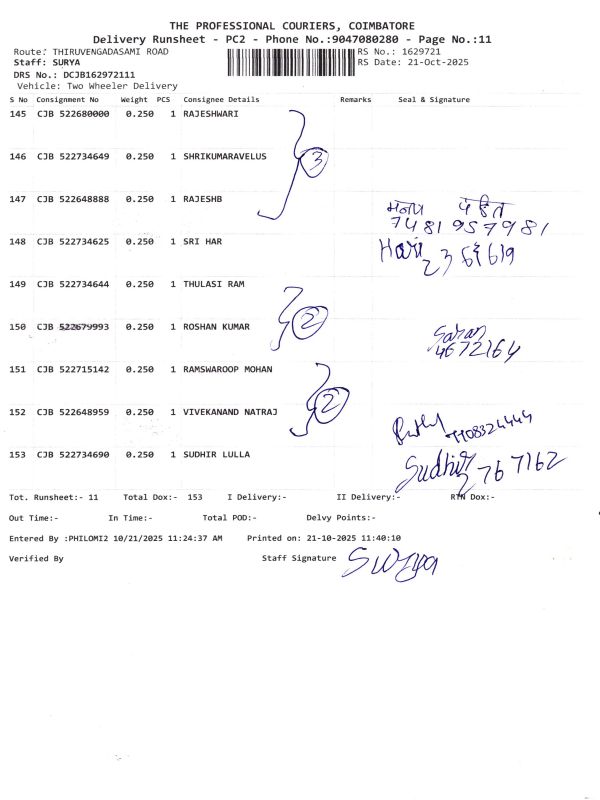 THE PROFESSIONAL COURIERS, COIMBATORE
Delivery Runsheet - PC2 - Phone No.:9047080280 - Page No.:11
Route: THIRUVENGADASAMI ROAD RS No.: 1629721
Staff: SURYA RS Date: 21-Oct-2025
DRS No.: DCJB162972111
Vehicle: Two Wheeler Delivery
S No Consignment No Weight PCS Consignee Details Remarks Seal & Signature
145 CJB 522680000 0.250 1 RAJESHWARI
146 CJB 522734649 0.250 1 SHRIKUMARAVELUS 3
147 CJB 522648888 0.250 1 RAJESHB
7481957981
148 CJB 522734625 0.250 1 SRI HAR Hari
149 CJB 522734644 0.250 1 THULASI RAM
150 CJB 522679993 0.250 1 ROSHAN KUMAR 2 Saran
4672164
151 CJB 522715142 0.250 1 RAMSWAROOP MOHAN
152 CJB 522648959 0.250 1 VIVEKANAND NATRAJ 2
153 CJB 522734690 0.250 1 SUDHIR LULLA Sudhir
Tot. Runsheet:- 11 Total Dox:- 153 I Delivery:- II Delivery:- RTN Dox:-
Out Time:- In Time:- Total POD:- Delvy Points:-
Entered By :PHILOMI2 10/21/2025 11:24:37 AM Printed on: 21-10-2025 11:40:10
Verified By Staff Signature Surya